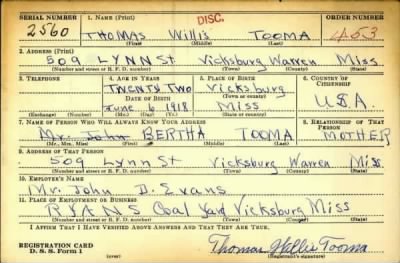 SERIAL NUMBER 1. NAME (Print) DISC. ORDER NUMBER
2560 THOMAS Willis TOOMA 453
(First) (Middle) (Last)
2. ADDRESS (Print)
509 LYNN St Vicksburg Warren Miss
(Number and street or R. F. D. number) (Town) (County) (State)
3. TELEPHONE 4. AGE IN YEARS 5. PLACE OF BIRTH 6. COUNTRY OF CITIZENSHIP
TWENTY TWO Vicksburg
DATE OF BIRTH (Town or county)
June 6 1918 Miss U.S.A.
(Exchange) (Number) (Mo.) (Day) (Yr.) (State or country)
7. NAME OF PERSON WHO WILL ALWAYS KNOW YOUR ADDRESS 8. RELATIONSHIP OF THAT PERSON
Mr. John BERTHA TOOMA MOTHER
(Mr., Mrs., Miss) (First) (Middle) (Last)
9. ADDRESS OF THAT PERSON
509 Lynn St Vicksburg Warren Miss.
(Number and street or R. F. D. number) (Town) (County) (State)
10. EMPLOYER'S NAME
Mr. John D. Evans
11. PLACE OF EMPLOYMENT OR BUSINESS
RYANS Coal Yard Vicksburg Miss
(Number and street or R. F. D. number) (Town) (County) (State)
I AFFIRM THAT I HAVE VERIFIED ABOVE ANSWERS AND THAT THEY ARE TRUE.
REGISTRATION CARD
D. S. S. Form 1 (over) Thomas Willis Tooma
(Registrant's signature)